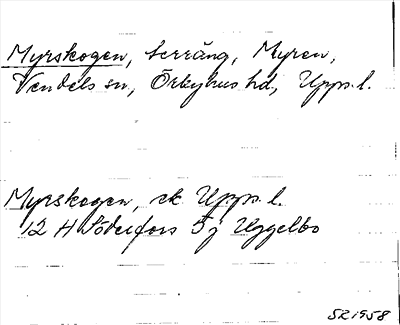 Myrskogen, terräng, Myren,
Vendels sn, Örbyhus hd, Upps. l.
Myrskogen, ek Upps. l.
12 H Söderfors 5 j Uggelbo
SR 1958